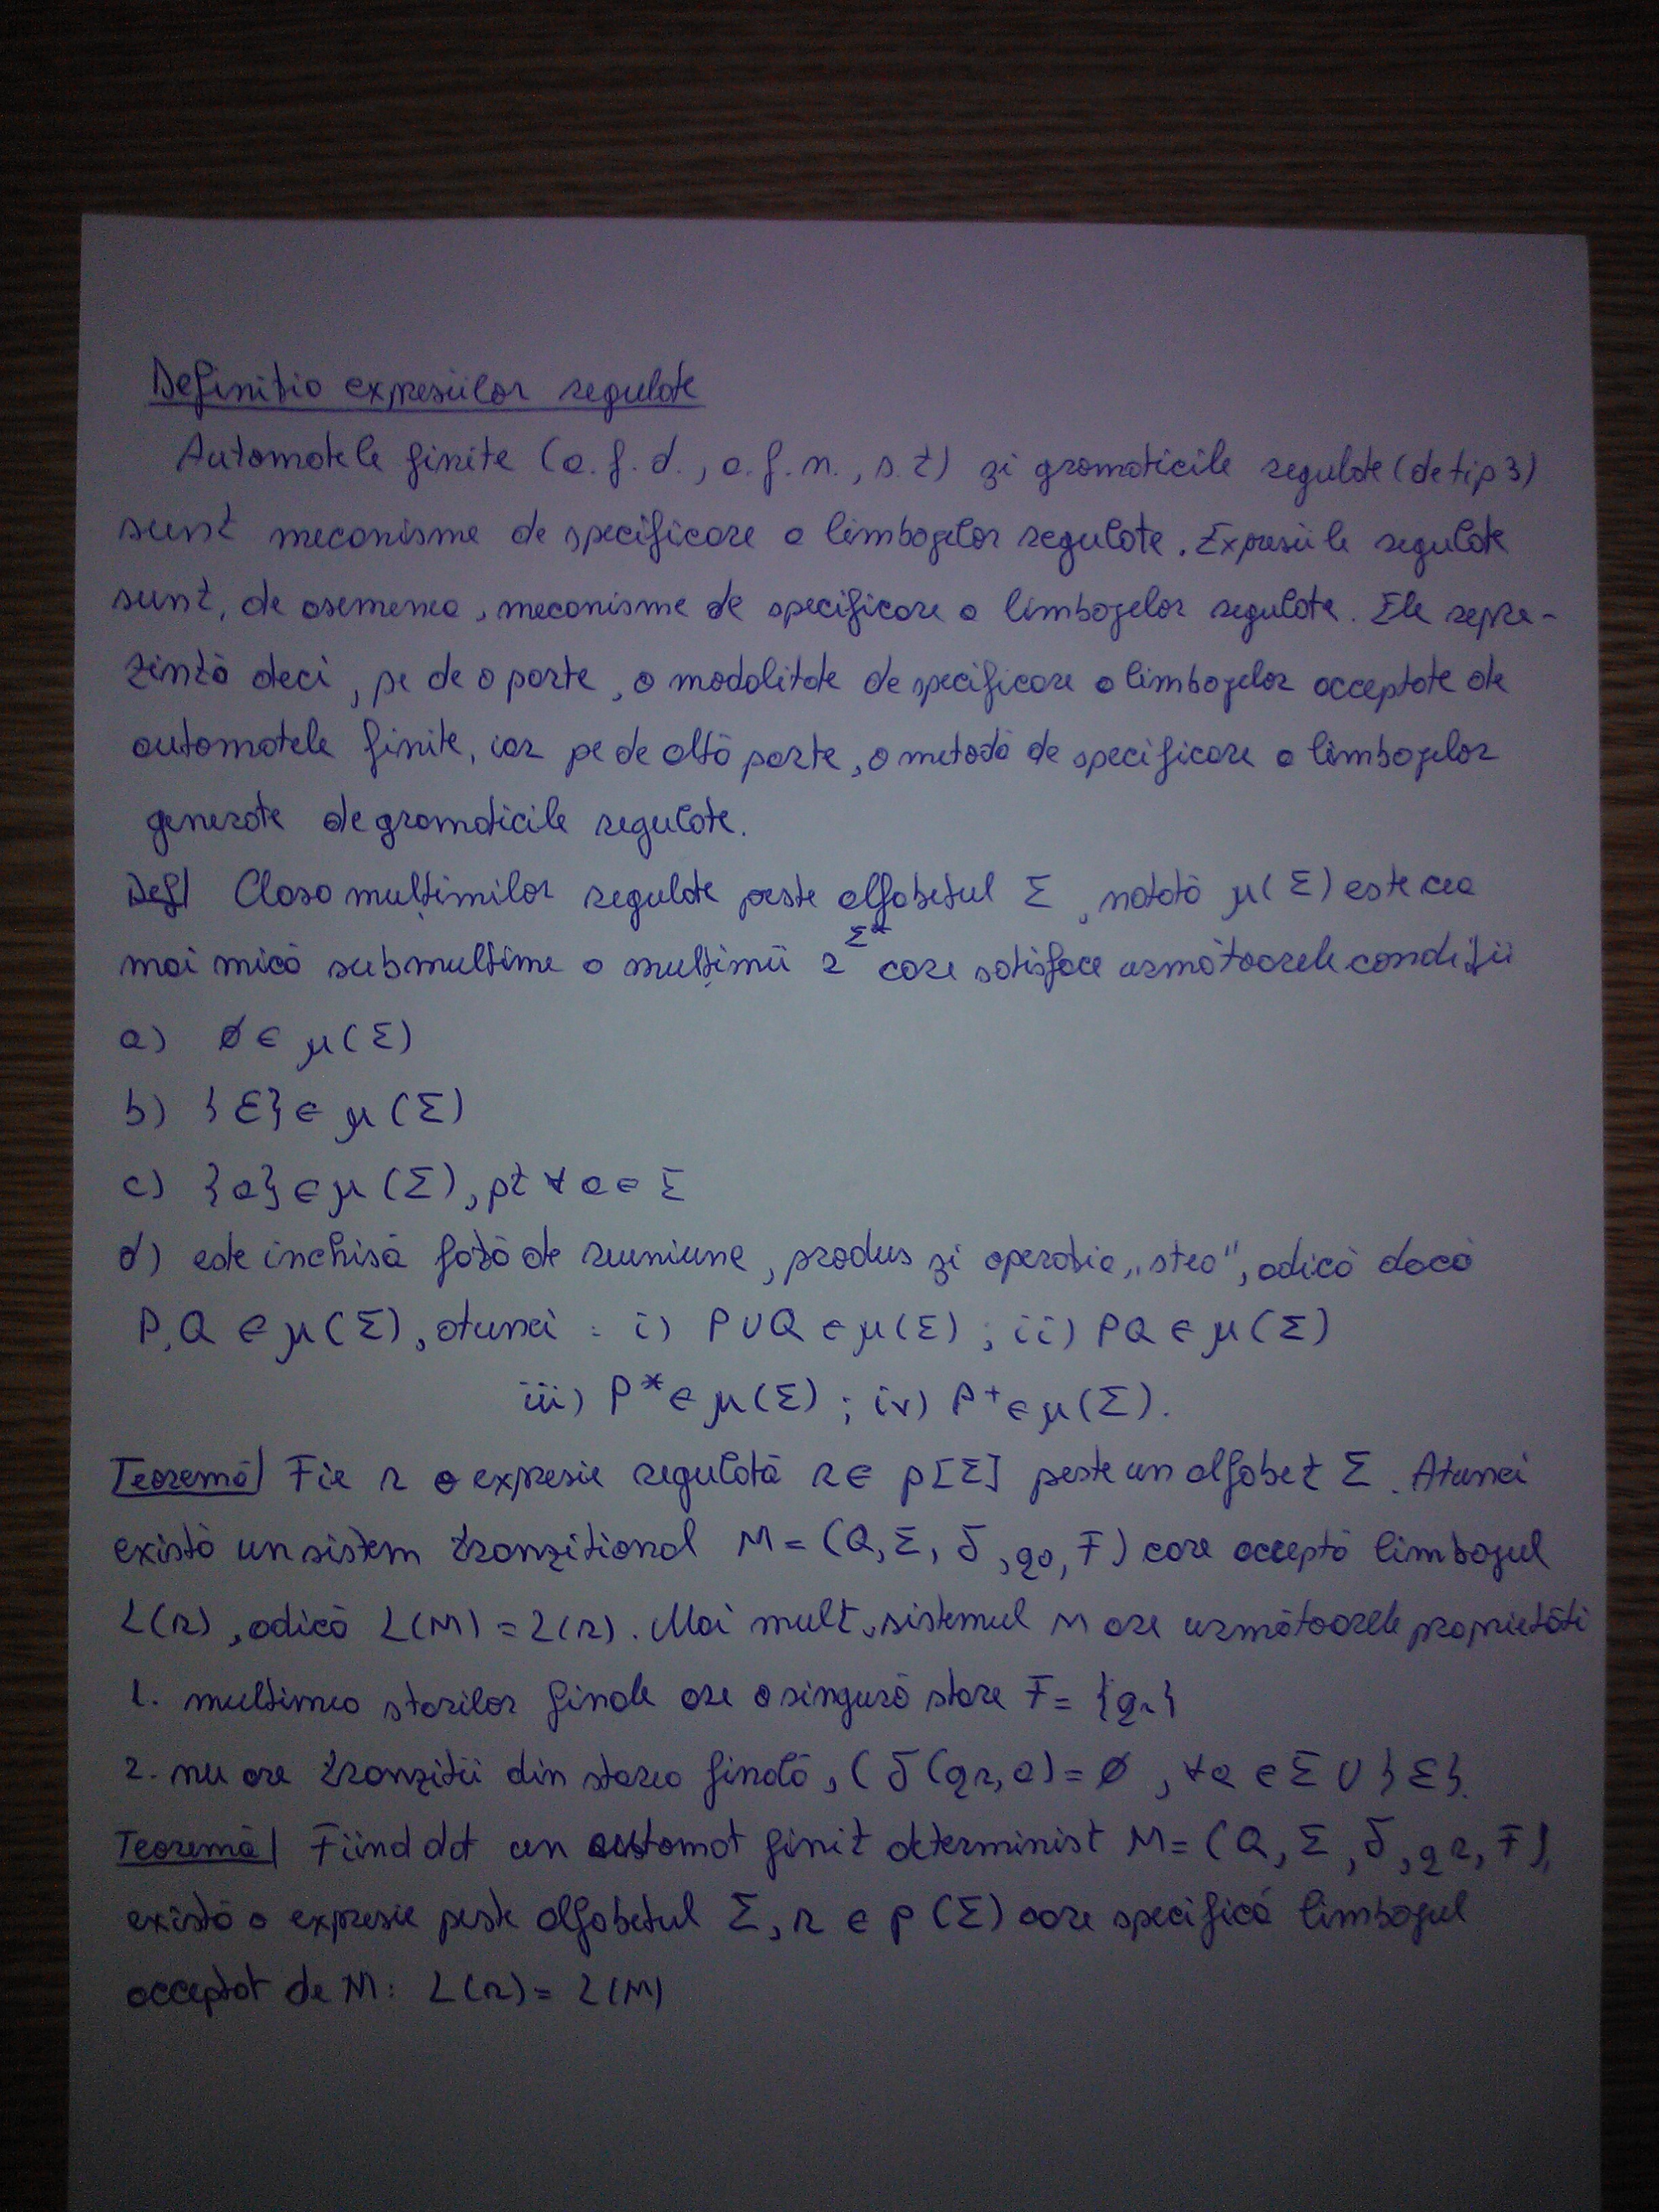 Definitia expresiilor regulate
Automatele finite (a.f.d., a.f.n., s.t) și gramaticile regulate (de tip 3)
sunt mecanisme de specificare a limbajelor regulate. Expresiile regulate
sunt, de asemenea, mecanisme de specificare a limbajelor regulate. Ele repre-
zintă deci, pe de o parte, o modalitate de specificare a limbajelor acceptate de
automatele finite, iar pe de altă parte, o metodă de specificare a limbajelor
generate de gramaticile regulate.
Def| Clasa mulțimilor regulate peste alfabetul Σ, notată μ(Σ) este cea
mai mică submultime a mulțimii 2^Σ* care satisface următoarele condiții
a) ∅ ∈ μ(Σ)
b) {ε} ∈ μ(Σ)
c) {a} ∈ μ(Σ), pt ∀ a ∈ Σ
d) este inchisă fată de reuniune, produs și operatia „stea", adică dacă
P,Q ∈ μ(Σ), atunci : i) P∪Q ∈ μ(Σ) ; ii) PQ ∈ μ(Σ)
iii) P* ∈ μ(Σ) ; iv) P⁺ ∈ μ(Σ).
Teoremă| Fie r o expresie regulată r ∈ p[Σ] peste un alfabet Σ. Atunci
există un sistem tranzitional M = (Q, Σ, δ, q0, F) care acceptă limbajul
L(r), adică L(M) = L(r). Mai mult, sistemul M are următoarele proprietăti
1. multimea starilor finale are o singură stare F = {qr}
2. nu are tranzitii din starea finală, (δ(qr,a) = ∅, ∀a ∈ Σ ∪ {ε}.
Teoremă| Fiind dat un automat finit determinist M = (Q, Σ, δ, qr, F),
există o expresie peste alfabetul Σ, r ∈ p(Σ) care specifică limbajul
acceptat de M: L(r) = L(M)